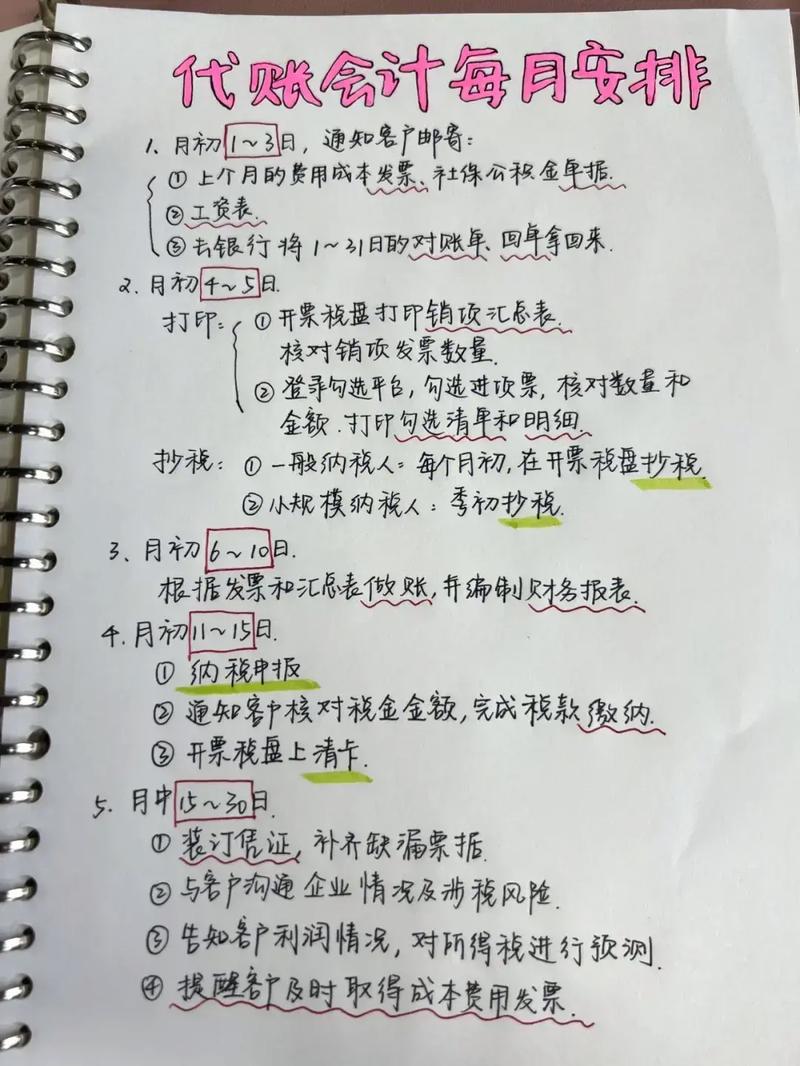 代账会计每月安排
1、月初1～3日，通知客户邮寄：
①上个月的费用成本发票、社保公积金单据.
②工资表.
③去银行将1～31日的对账单、回单拿回来.
2、月初4～5日.
打印：①开票税盘打印销项汇总表.
核对销项发票数量.
②登录勾选平台，勾选进项票，核对数量和
金额.打印勾选清单和明细.
抄税：①一般纳税人：每个月初，在开票税盘抄税.
②小规模纳税人：季初抄税.
3、月初6～10日.
根据发票和汇总表做账，并编制财务报表.
4、月初11～15日.
①纳税申报
②通知客户核对税金金额，完成税款缴纳.
③开票税盘上清卡.
5、月中15～30日.
①装订凭证，补齐缺漏票据.
②与客户沟通企业情况及涉税风险.
③告知客户利润情况，对所得税进行预测.
④提醒客户及时取得成本费用发票.